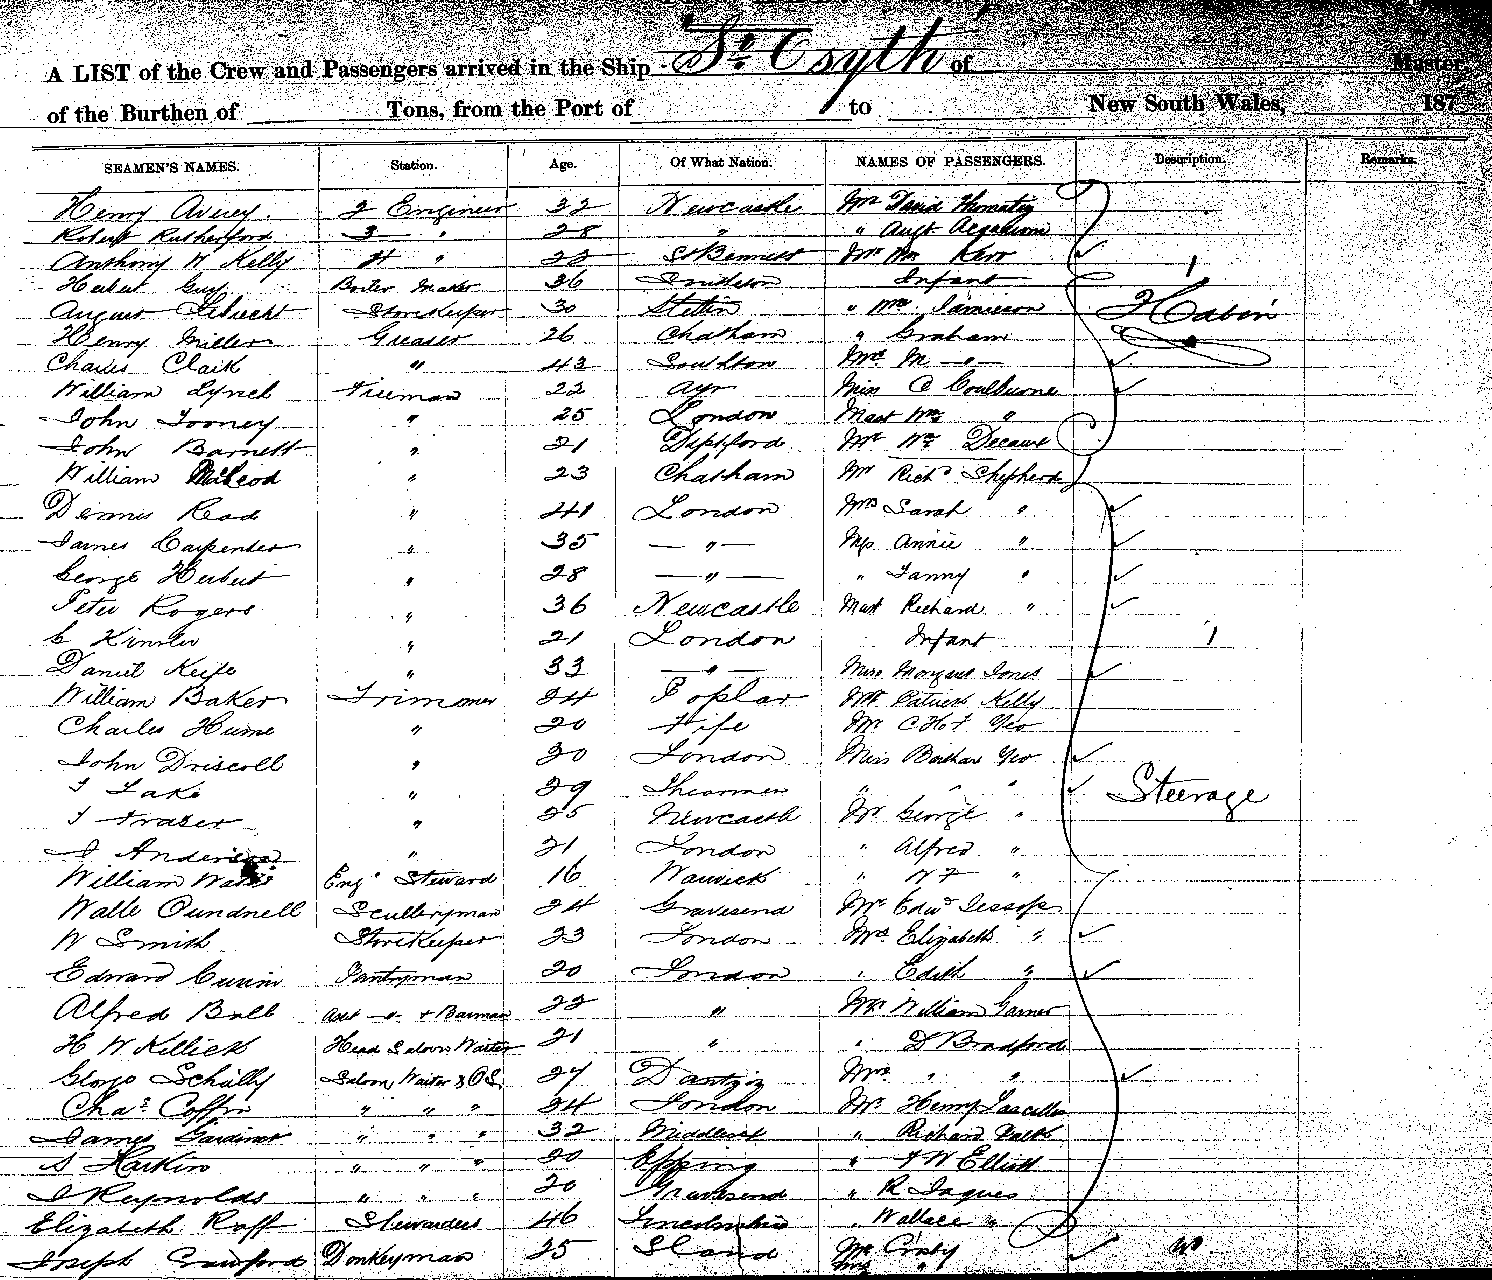 A LIST of the Crew and Passengers arrived in the Ship St Osyth of Master
of the Burthen of Tons, from the Port of to New South Wales, 187
SEAMEN'S NAMES. Station. Age. Of What Nation. NAMES OF PASSENGERS. Description. Remarks.
Henry Avery. 2 Engineer 32 Newcastle Mr David
Robert Rutherford 3 " 28 " " Augt
Anthony W Kelly 4 " 22 St Bennett Mr Wm Kerr
Herbert Guy Boiler Maker 36 Infant 1
August Storekeeper 30 Stettin " Mrs Jamieson Cabin
Henry Miller Greaser 26 Chatham " Graham
Charles Clark " 43 Southton Mrs M —"—
William Lynch Fireman 22 Ayr Miss C
John Tooney " 25 London Mast Wm "
John Barnett " 21 Deptford Mr Wm
William McLeod " 23 Chatham Mr Richd Shepherd
Dennis Read " 41 London Mrs Sarah "
James Carpenter " 35 —"— Miss Annie "
George Herbert " 28 —"— " Fanny "
Peter Rogers " 36 Newcastle Mast Richard "
C " 21 London Infant 1
Daniel Keefe " 33 —"— Miss Margaret Jones
William Baker Trimmer 24 Poplar Mr Patrick Kelly
Charles Hume " 20 Fife Mr C H F Yeo
John Driscoll " 20 London Miss Yeo
" 29 " " Steerage
J Fraser " 25 Newcastle Mr George "
J Anderson " 21 London " Alfred "
William Engs Steward 16 Warwick " W F "
Walter Cundnell Sculleryman 24 Gravesend Mr Edwd Jessop
W Smith Storekeeper 23 London Mrs Elizabeth "
Edward Pantryman 20 London " Edith "
Alfred Ball Asst —"— + Barman 22 " Mr William Garner
H W Killick Head Saloon Waiter 21 " " D Bradford
George Schully Saloon Waiter & OS 27 Dantzig Mrs " "
Chas Coffin " " " 24 London Mr Henry Lascelles
James Gardiner " " " 32 Middlesex " Richard
S Harkin " " " 20 Epping " F W Elliott
J Reynolds " " " 20 Gravesend " R Jaques
Elizabeth Raff Stewardess 46 Lincolnshire " Wallace "
Joseph Crawford Donkeyman 25 Mr Crosby
Mrs "